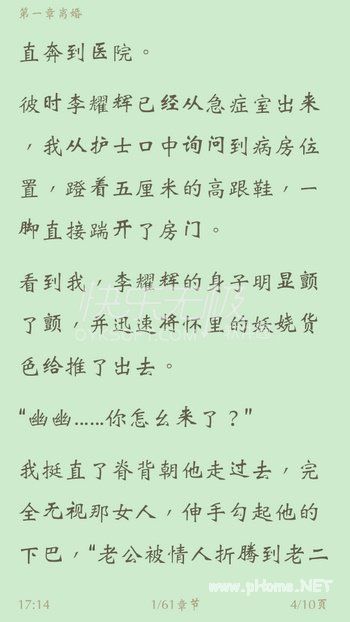 第一章离婚
直奔到医院。
彼时李耀辉已经从急症室出来
，我从护士口中询问到病房位
置，蹬着五厘米的高跟鞋，一
脚直接踹开了房门。
看到我，李耀辉的身子明显颤
了颤，并迅速将怀里的妖娆货
色给推了出去。
快乐无极
OYKSOFT.COM
“幽幽……你怎么来了？”
我挺直了脊背朝他走过去，完
全无视那女人，伸手勾起他的
下巴，“老公被情人折腾到老二
www.pHome.NET
17:14 1/61章节 4/10页